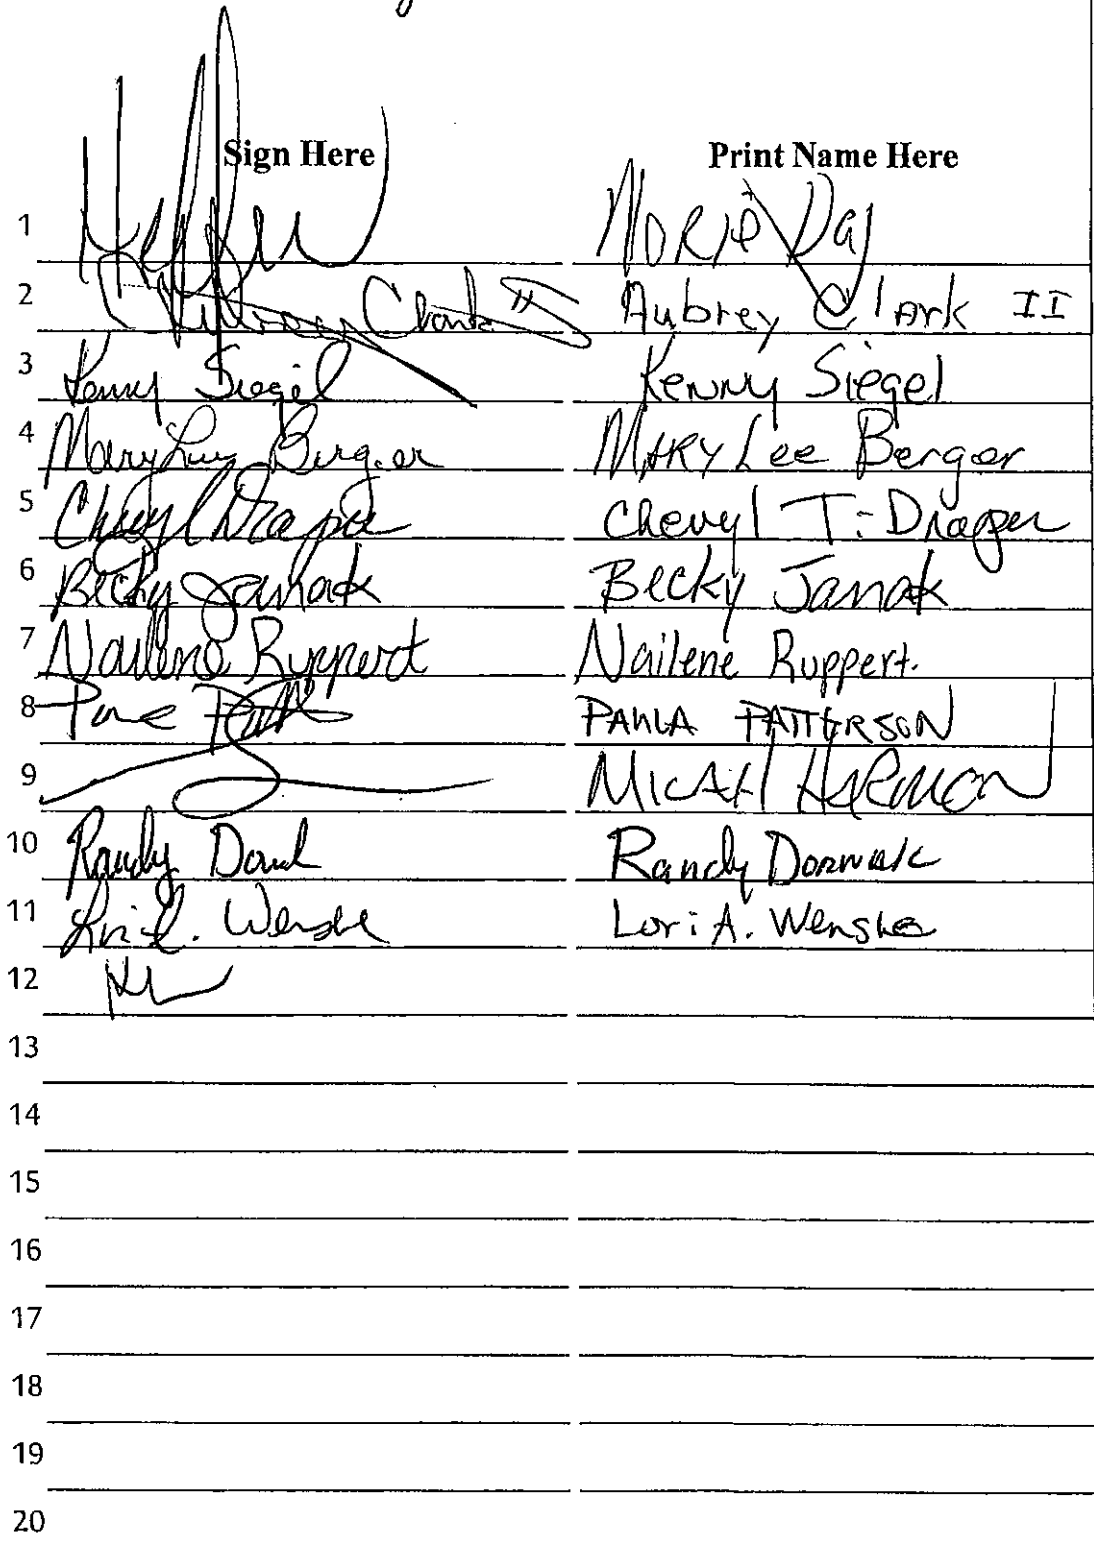 Sign Here Print Name Here
1 Day
2 Clark II Aubrey Clark II
3 Kenny Siegel Kenny Siegel
4 Mary Lee Berger Mary Lee Berger
5 Cheryl Draper Cheryl T. Draper
6 Becky Janak Becky Janak
7 Nailene Ruppert Nailene Ruppert.
8 PAULA PATTERSON
9 MICAH HARMON
10 Randy Randy Dornak
11 Lori A. Wenske Lori A. Wenske
12
13
14
15
16
17
18
19
20